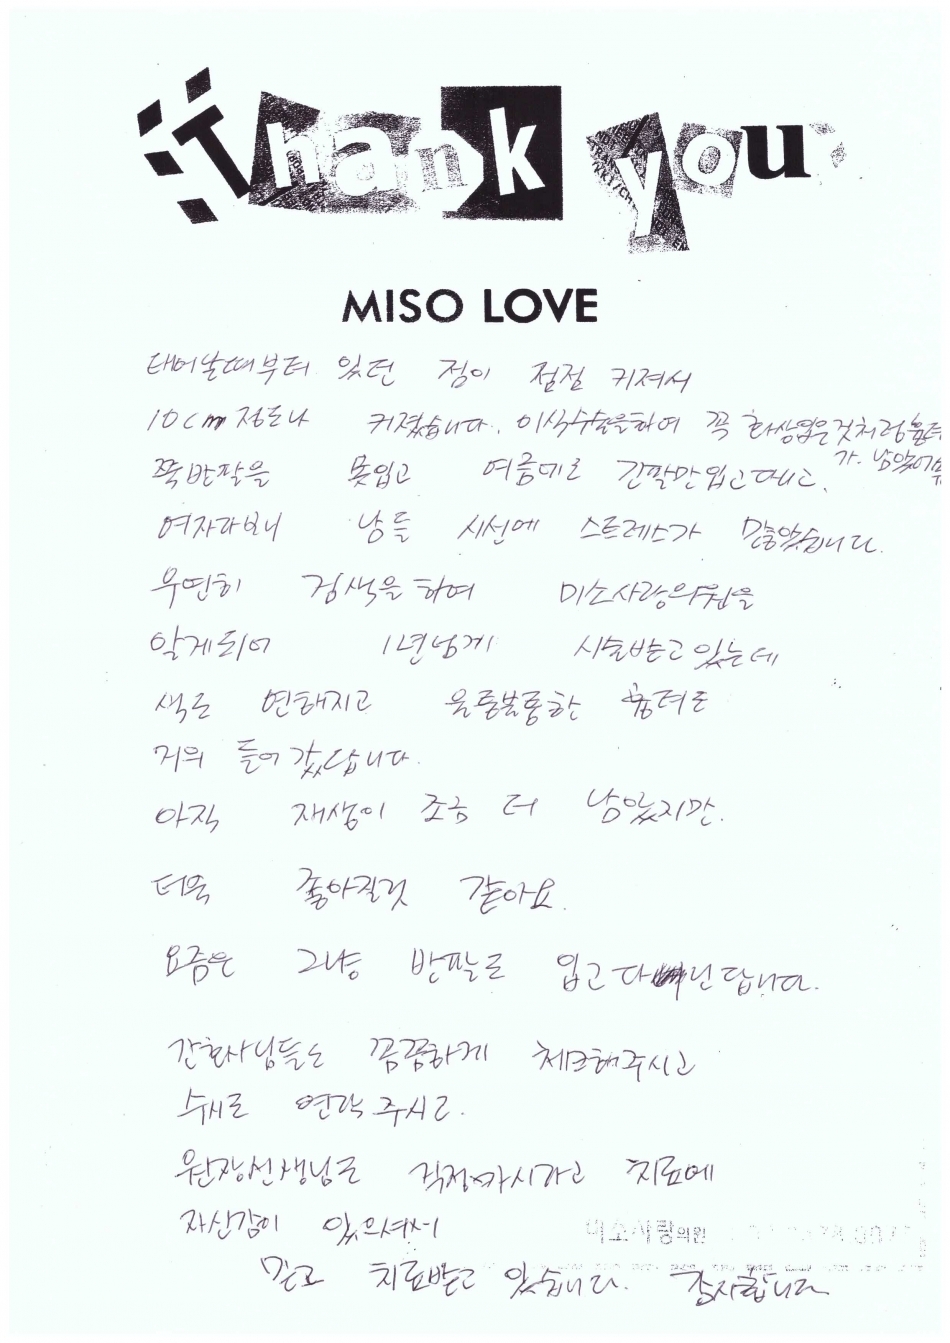 Thank you
MISO LOVE
태어날때부터 있던 점이 점점 커져서
10cm 정도나 커졌습니다. 이식수술을하여 꼭 화상입은것처럼 흉터
가 남았어
쭉 반팔을 못입고 여름에도 긴팔만 입고 다니고,
여자다보니 남들 시선에 스트레스가 많았습니다.
우연히 검색을 하여 미소사랑의원을
알게되어 1년넘게 시술받고 있는데
색도 연해지고 울퉁불퉁한 흉터도
거의 들어갔답니다.
아직 재생이 조금 더 남았지만.
더욱 좋아질것 같아요.
요즘은 그냥 반팔도 입고 다닌답니다.
간호사님들도 꼼꼼하게 체크해주시고
수시로 연락주시고.
원장선생님도 걱정마시라고 치료에
자신감이 있으셔서
미소사랑의원
믿고 치료받고 있습니다. 감사합니다